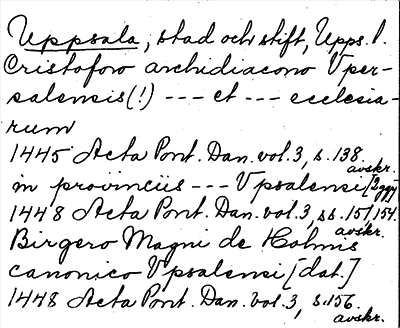 Uppsala, stad och stift, Upps. l.
Cristoforo archidiacono Vper-
salensis(!) --- et --- ecclesia-
rum
1445 Acta Pont. Dan. vol. 3, s. 138.
avskr.
in provinciis --- Vpsalensi [2 ggr]
1448 Acta Pont. Dan. vol. 3, ss. 151, 154.
avskr.
Birgero Magni de Holmis
canonico Vpsalensi [dat.]
1448 Acta Pont. Dan. vol. 3, s. 156.
avskr.